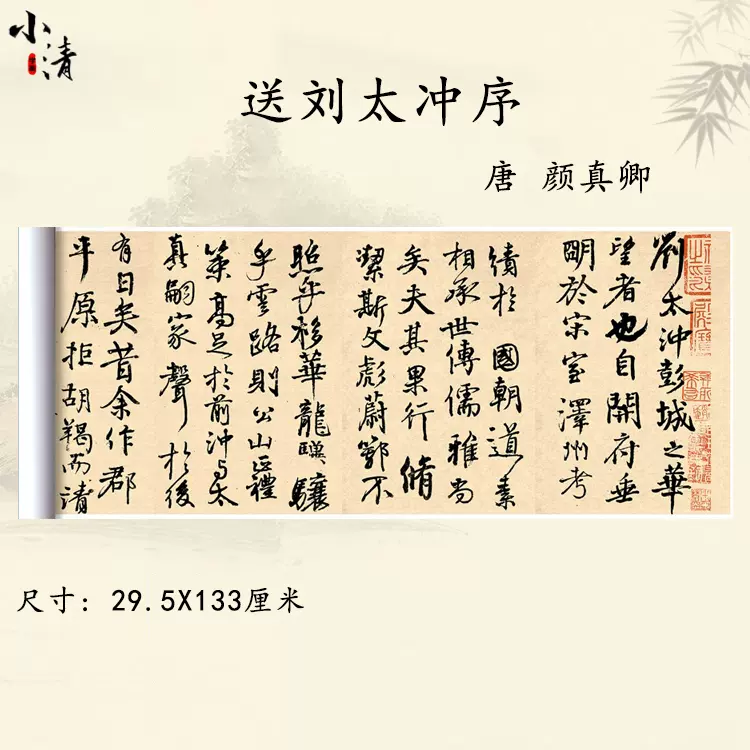 小清
送刘太冲序
唐 颜真卿
劉太沖彭城之華
望者也自開府垂
明於宋室澤州考
績於國朝道素
相承世傳儒雅尚
矣夫其果行脩
潔斯文彪蔚鄂不
照乎移華龍驥驤
乎雲路則公山正禮
策高足於前沖与太
真嗣家聲於後
有日矣昔余作郡
平原拒胡羯而請
尺寸：29.5X133厘米